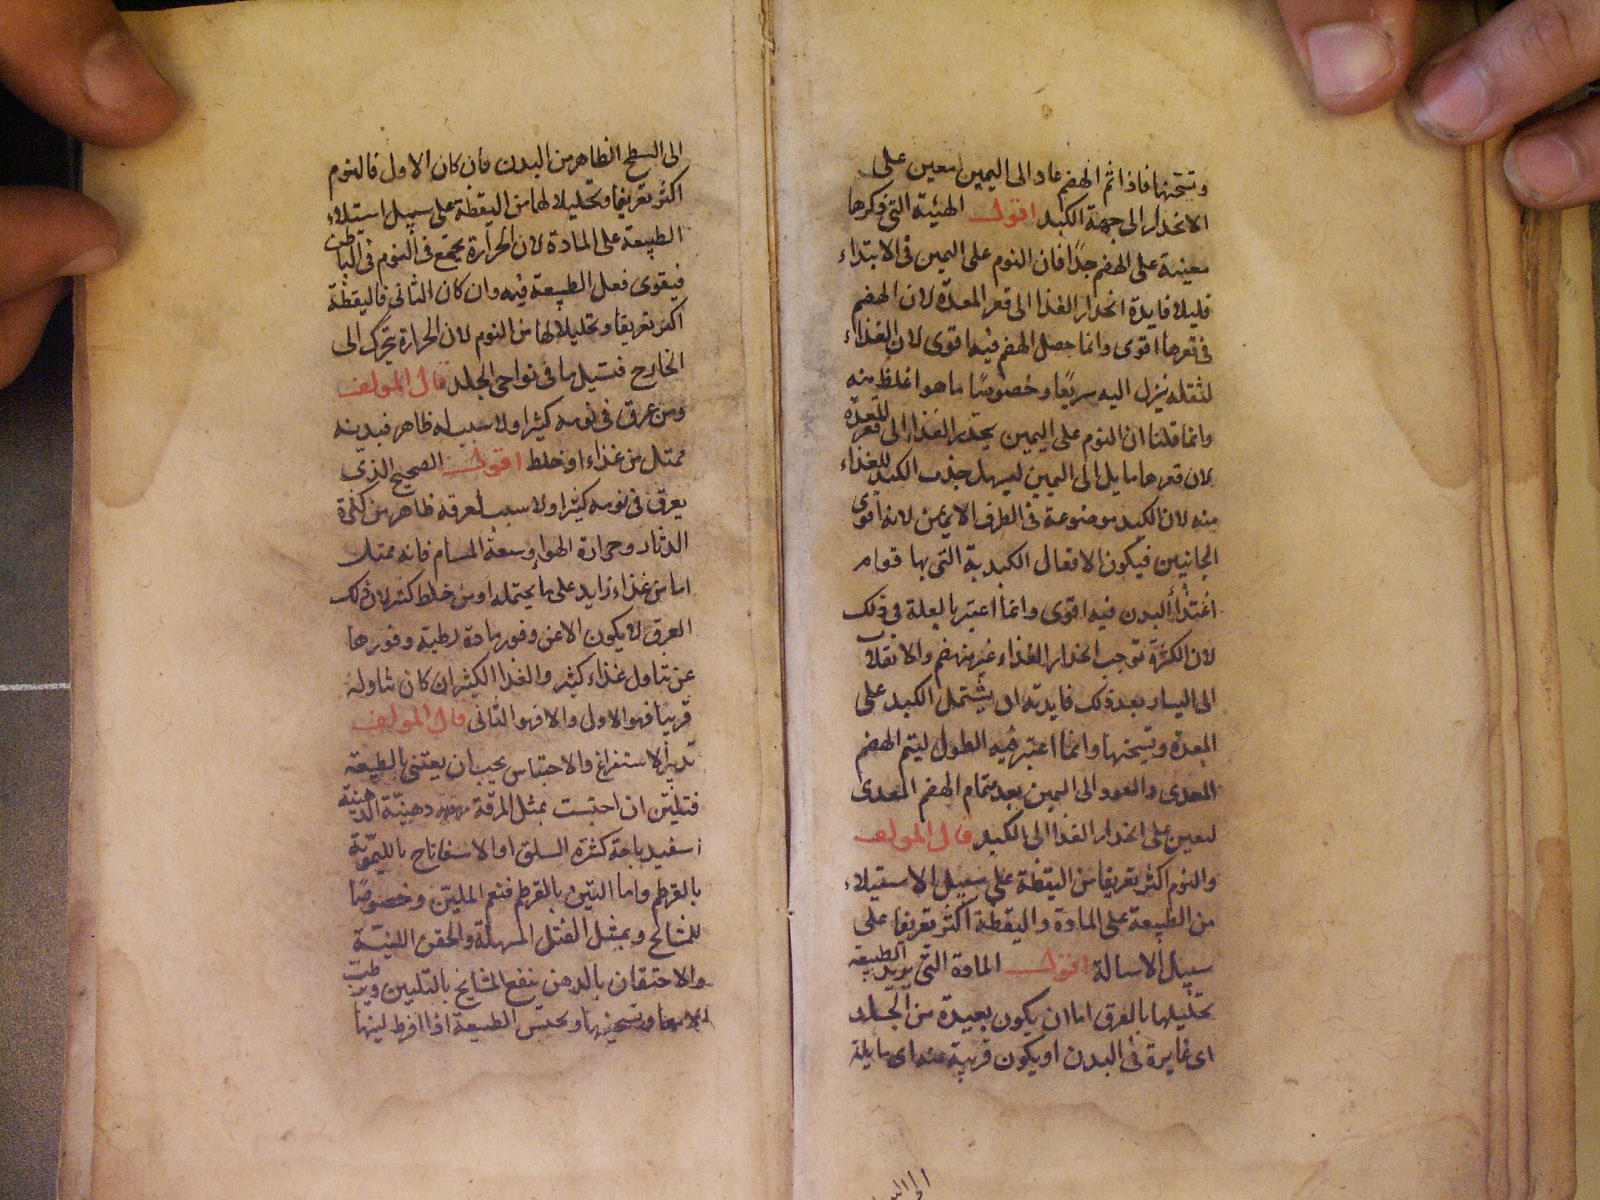 وتسخنها فاذا تم الهضم عاد الى اليمين معين على
الانحدار الى جهة الكبد اقول الهيئة التى ذكرها
معينة على الهضم جدا فان النوم على اليمين فى الابتداء
قليلا فايدة انحدار الغذا الى قعر المعدة لان الهضم
فى قعرها اقوى وانما حصل الهضم فيه اقوى لان الغذاء
لثقله ينزل اليه سريعًا وخصوصًا ما هو اغلظ منه
وانما قلنا ان النوم على اليمين يحدر الغذا الى قعر المعدة
لان قعرها مايل الى اليمين ليسهل جذب الكبد للغذاء
منه لان الكبد موضوعة فى الطرف الايمن لانه اقوى
الجانبين فيكون الافعال الكبدية التى بها قوام
اغتذاء البدن فيه اقوى وانما اعتبر بالعلة فى ذلك
لان الكثرة توجب انحدار الغذاء غير منهضم والانقلاب
الى اليسار بعد ذلك فايدته ان يشتمل الكبد على
المعدة وتسخنها وانما اعتبر فيه الطول ليتم الهضم
المعدى والعود الى اليمين بعد تمام الهضم المعدى
لتعين على انحدار الغذا الى الكبد قال المولف
والنوم اكثر تعريقا من اليقظة على سبيل الاستيلاء
من الطبيعة على المادة واليقظة اكثر تعريقا على
سبيل الاسالة اقول المادة التى يريد الطبيعة
تحليلها بالعرق اما ان يكون بعيدة من الجلد
اى غايرة فى البدن او يكون قريبة منه اى مايلة
الى السطح الظاهر من البدن فان كان الاول فالنوم
اكثر تعريقا وتحليلا لها من اليقظة على سبيل استيلاء
الطبيعة على المادة لان الحرارة يجتمع فى النوم فى الباطن
فيقوى فعل الطبيعة فيه وان كان الثانى فاليقظة
اكثر تعريقا وتحليلا لها من النوم لان الحرارة يتحرك الى
الخارج فتسيل ما فى نواحى الجلد قال المولف
ومن عرق فى نومه كثيرا ولا سبب له ظاهر فبدنه
ممتل من غذاء او خلط اقول الصحيح الذى
يعرق فى نومه كثيرا ولا سبب لعرقه ظاهر من كثرة
الدثار وحرارة الهوا وسعة المسام فانه ممتل
اما من غذاء زايد على ما يحتمله او من خلط كثر لان ذلك
العرق لا يكون الا عن وفور مادة رطبة وفورها
عن تناول غذاء كثير والغذا الكثير ان كان تناوله
قريبا فهو الاول والا فهو الثانى قال المولف
تدبير الاستفراغ والاحتباس يجب ان يعتنى بالطبيعة
فتلين ان احتبست بمثل المرقة دهنية الدهنية
اسفيدباجة كثرة السلق او الاسفاناخ بالليمونة
بالقرطم واما التين بالقرطم فنعم الملين وخصوصًا
للمشايخ وبمثل الفتل المسهلة والحقن اللينة
والاحتقان بالدهن ينفع المشايخ بالتليين وترطيب
الامعا وتسخينها وتحبس الطبيعة اذا افرط لينها